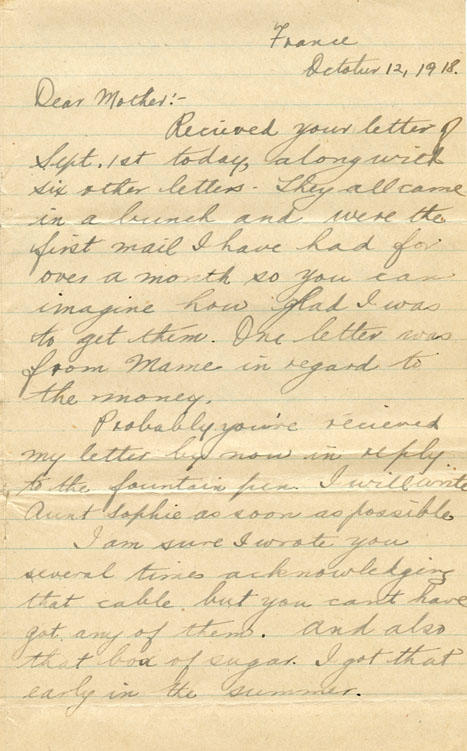 France
October 12, 1918.
Dear Mother:-
Recieved your letter of
Sept. 1st today, along with
six other letters. They all came
in a bunch and were the
first mail I have had for
over a month so you can
imagine how glad I was
to get them. One letter was
from Mame in regard to
the money.
Probably you've recieved
my letter by now in reply
to the fountain pen. I will write
Aunt Sophie as soon as possible
I am sure I wrote you
several times acknowledging
that cable but you cant have
got any of them. And also
that box of sugar. I got that
early in the summer.